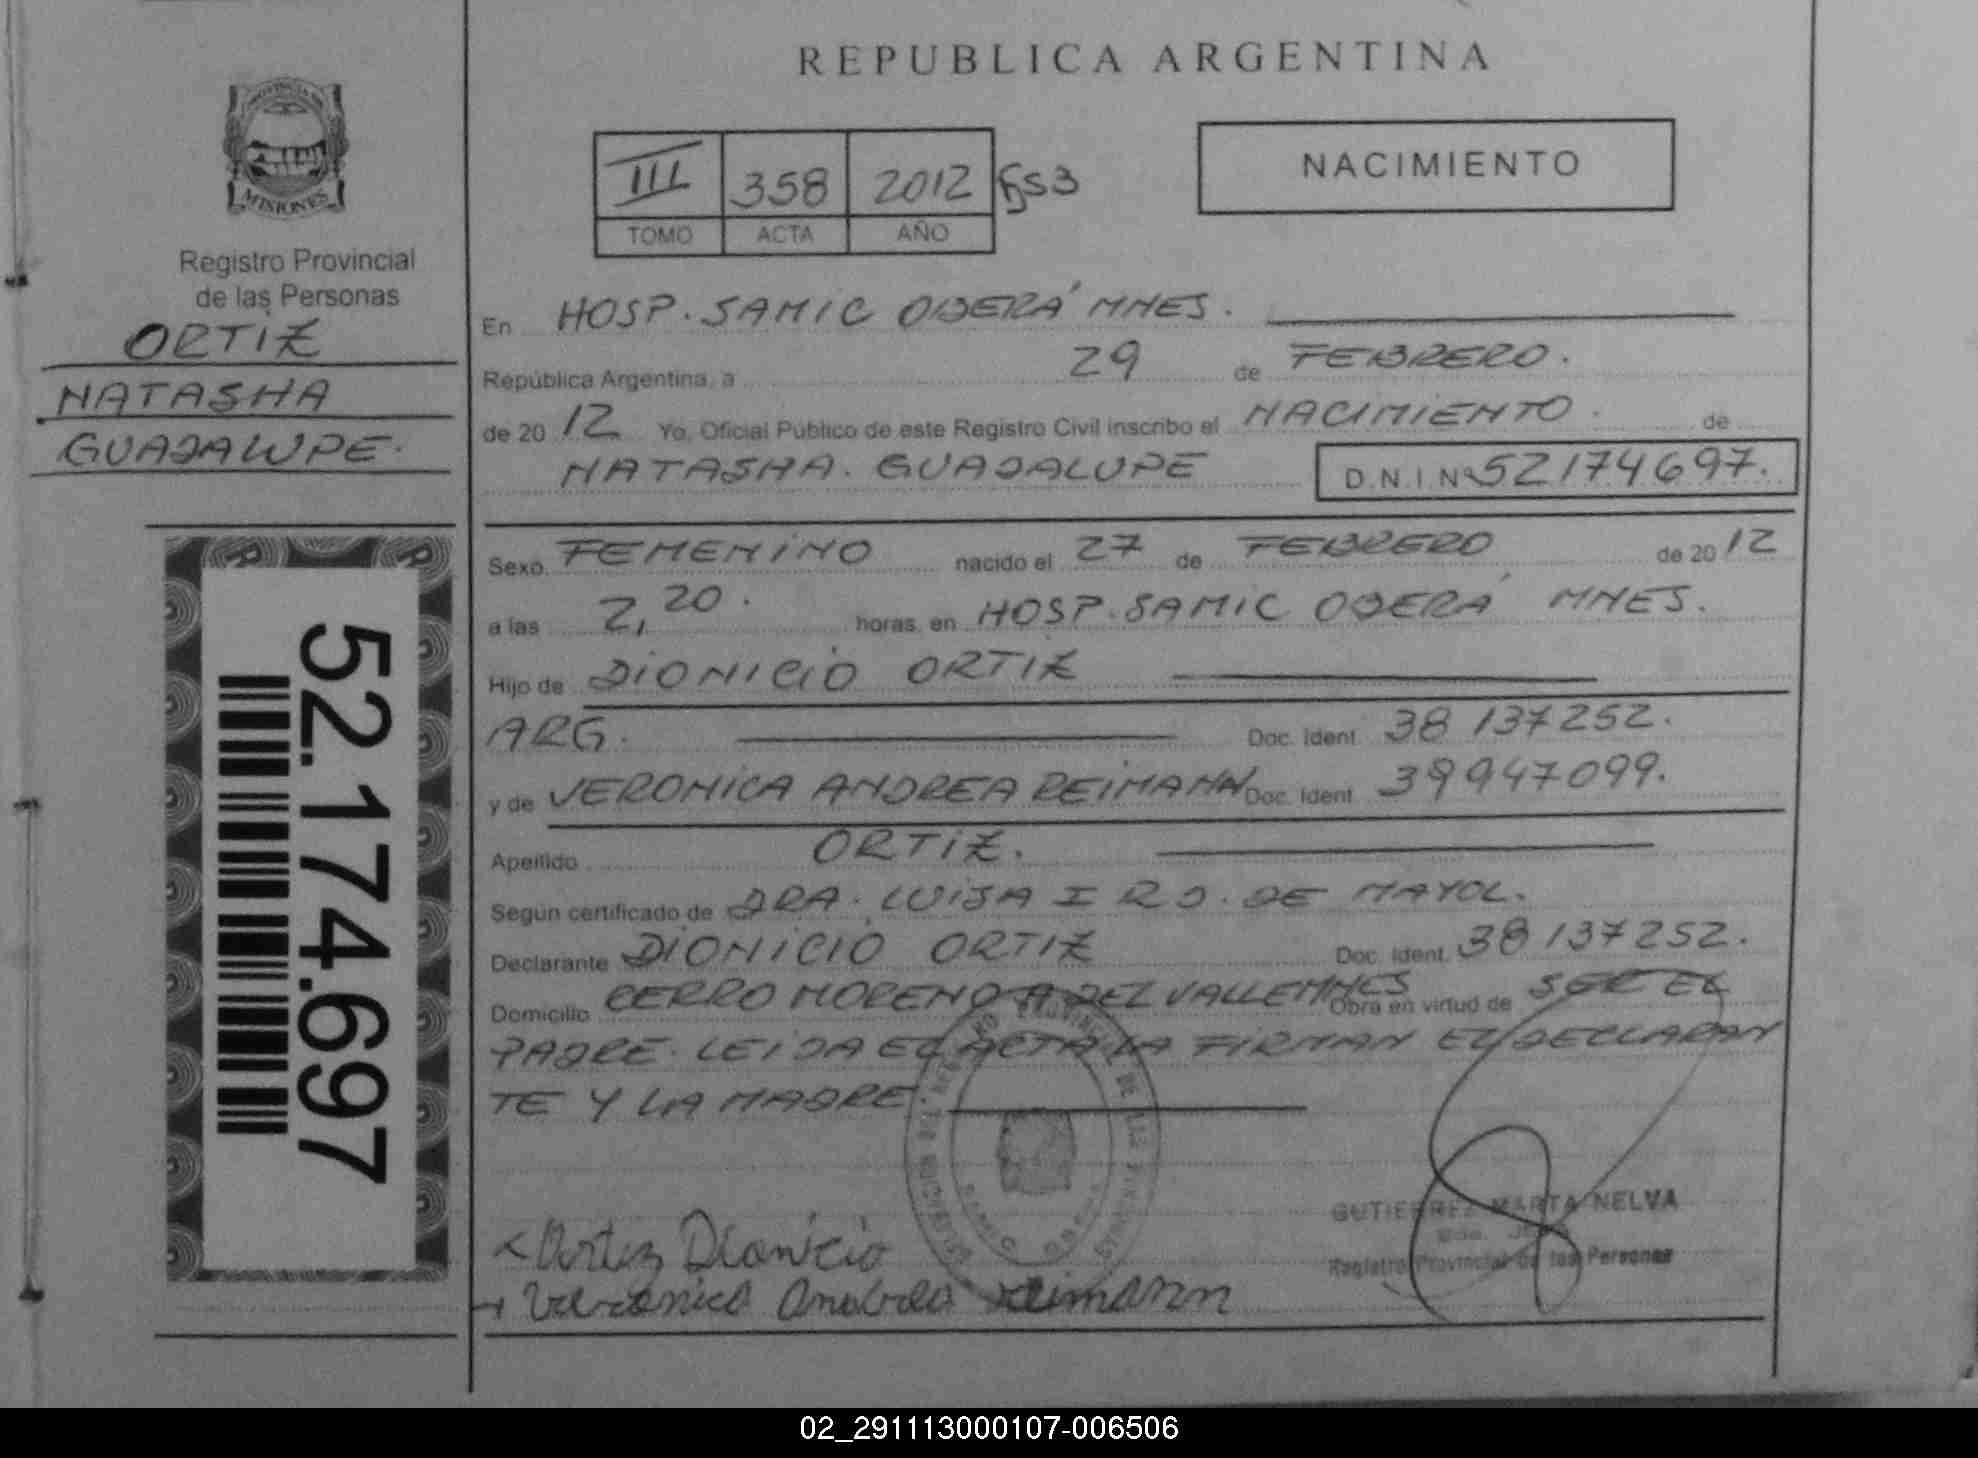 REPUBLICA ARGENTINA
PROVINCIA DE
MISIONES
Registro Provincial
de las Personas
ORTIZ
NATASHA
GUADALUPE.
52.174.697
III 358 2012 Fs 53
TOMO ACTA AÑO
NACIMIENTO
En HOSP. SAMIC OBERÁ MNES.
República Argentina, a 29 de FEBRERO.
de 2012 Yo, Oficial Público de este Registro Civil inscribo el NACIMIENTO. de
NATASHA. GUADALUPE D.N.I. Nº 52174697.
Sexo FEMENINO nacido el 27 de FEBRERO de 2012
a las 2,20. horas, en HOSP. SAMIC OBERÁ MNES.
Hijo de DIONICIO ORTIZ
ARG. Doc. Ident. 38 137252.
y de VERONICA ANDREA REIMANN Doc. Ident. 39947099.
Apellido ORTIZ.
Según certificado de DRA. LUISA I R D. DE MAYOL.
Declarante DIONICIO ORTIZ Doc. Ident. 38 137252.
Domicilio CERRO MORENO A DEL VALLE MNES Obra en virtud de SER EL
PADRE. LEIDA EL ACTA LA FIRMAN EL DECLARAN
TE Y LA MADRE.
Ortiz Dionicio
Veronica Andrea Reimann
GUTIERREZ MARTA NELVA
Registro Provincial de las Personas
02_291113000107-006506